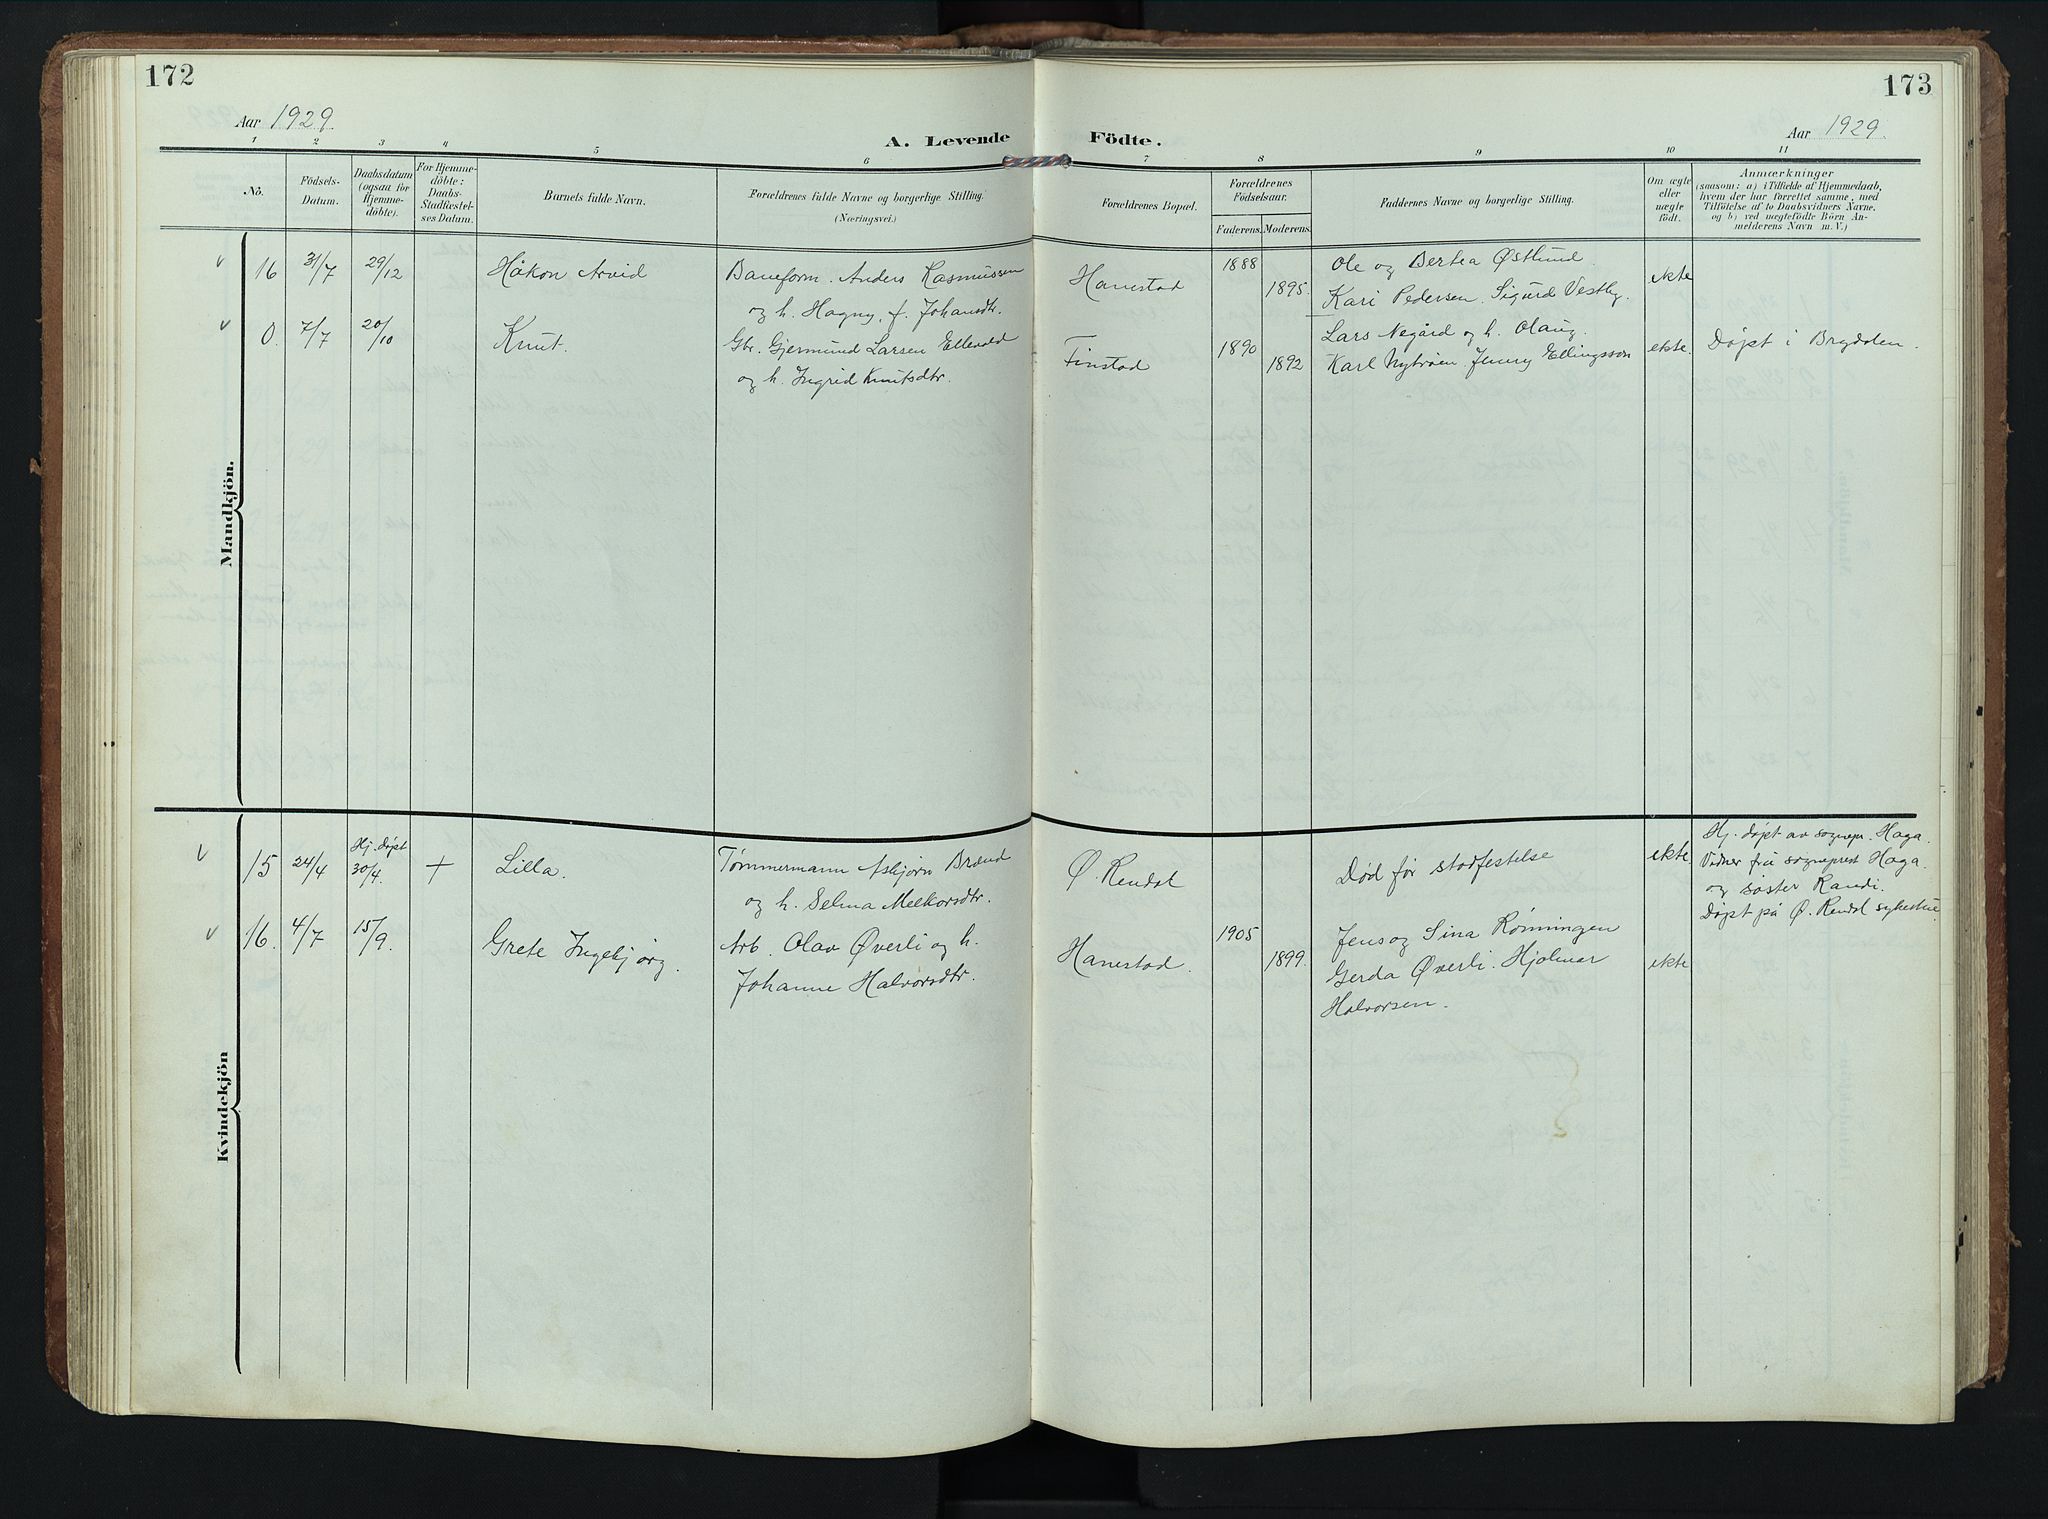 172
173
Aar 1929
A. Levende Födte.
Aar 1929.
1 2 3 4 5 6 7 8 9 10 11
Nó.
Födsels-
Datum.
Daabsdatum
(ogsaa for
Hjemme-
döbte).
For Hjemme-
döbte:
Daabs-
Stadfæstel-
ses Datum.
Barnets fulde Navn.
Forældrenes fulde Navne og borgerlige Stilling.
(Næringsvei.)
Forældrenes Bopæl.
Forældrenes
Födselsaar.
Faderens. Moderens.
Faddernes Navne og borgerlige Stilling.
Om ægte
eller
uægte
födt.
Anmærkninger
(saasom: a) i Tilfælde af Hjemmedaab,
hvem der har forrettet samme, med
Tilföielse af to Daabsvidners Navne.
og b) ved uægtefödte Börn An-
melderens Navn m. V.)
Mandkjön.
16 31/7 29/12 Håkon Arvid
Baneform. Anders Rasmussen
og h. Hagny, f. Johansdtr.
Hanestad
1888
1895
Ole og Bertea Østlund.
Kari Pedersen. Sigurd Vestby.
ekte
0. 7/7 20/10 Knut.
Gbr. Gjermund Larsen Ellevold
og h. Ingrid Knutsdtr.
Finstad
1890
1892
Lars Negård og h. Olaug.
Karl Nytrøen. Jenny Ellingsson
ekte.
Døpt i Brydalen.
Kvindekjön
15 24/4 Hj. døpt
30/4. + Lilla.
Tømmermann Asbjørn Brænd
og h. Selma Melkorsdtr.
Ø. Rendal
Død før stadfestelse
ekte
Hj. døpt av sognepr. Haga.
Vidner fru sogneprest Haga
og søster Randi.
Døpt på Ø. Rendal sykestue
16. 4/7 15/9. Grete Ingebjørg.
Arb. Olav Øverli og h.
Johanne Halvorsdtr.
Hanestad.
1905
1899
Jens og Sina Rønningen
Gerda Øverli. Hjalmar
Halvorsen.
ekte